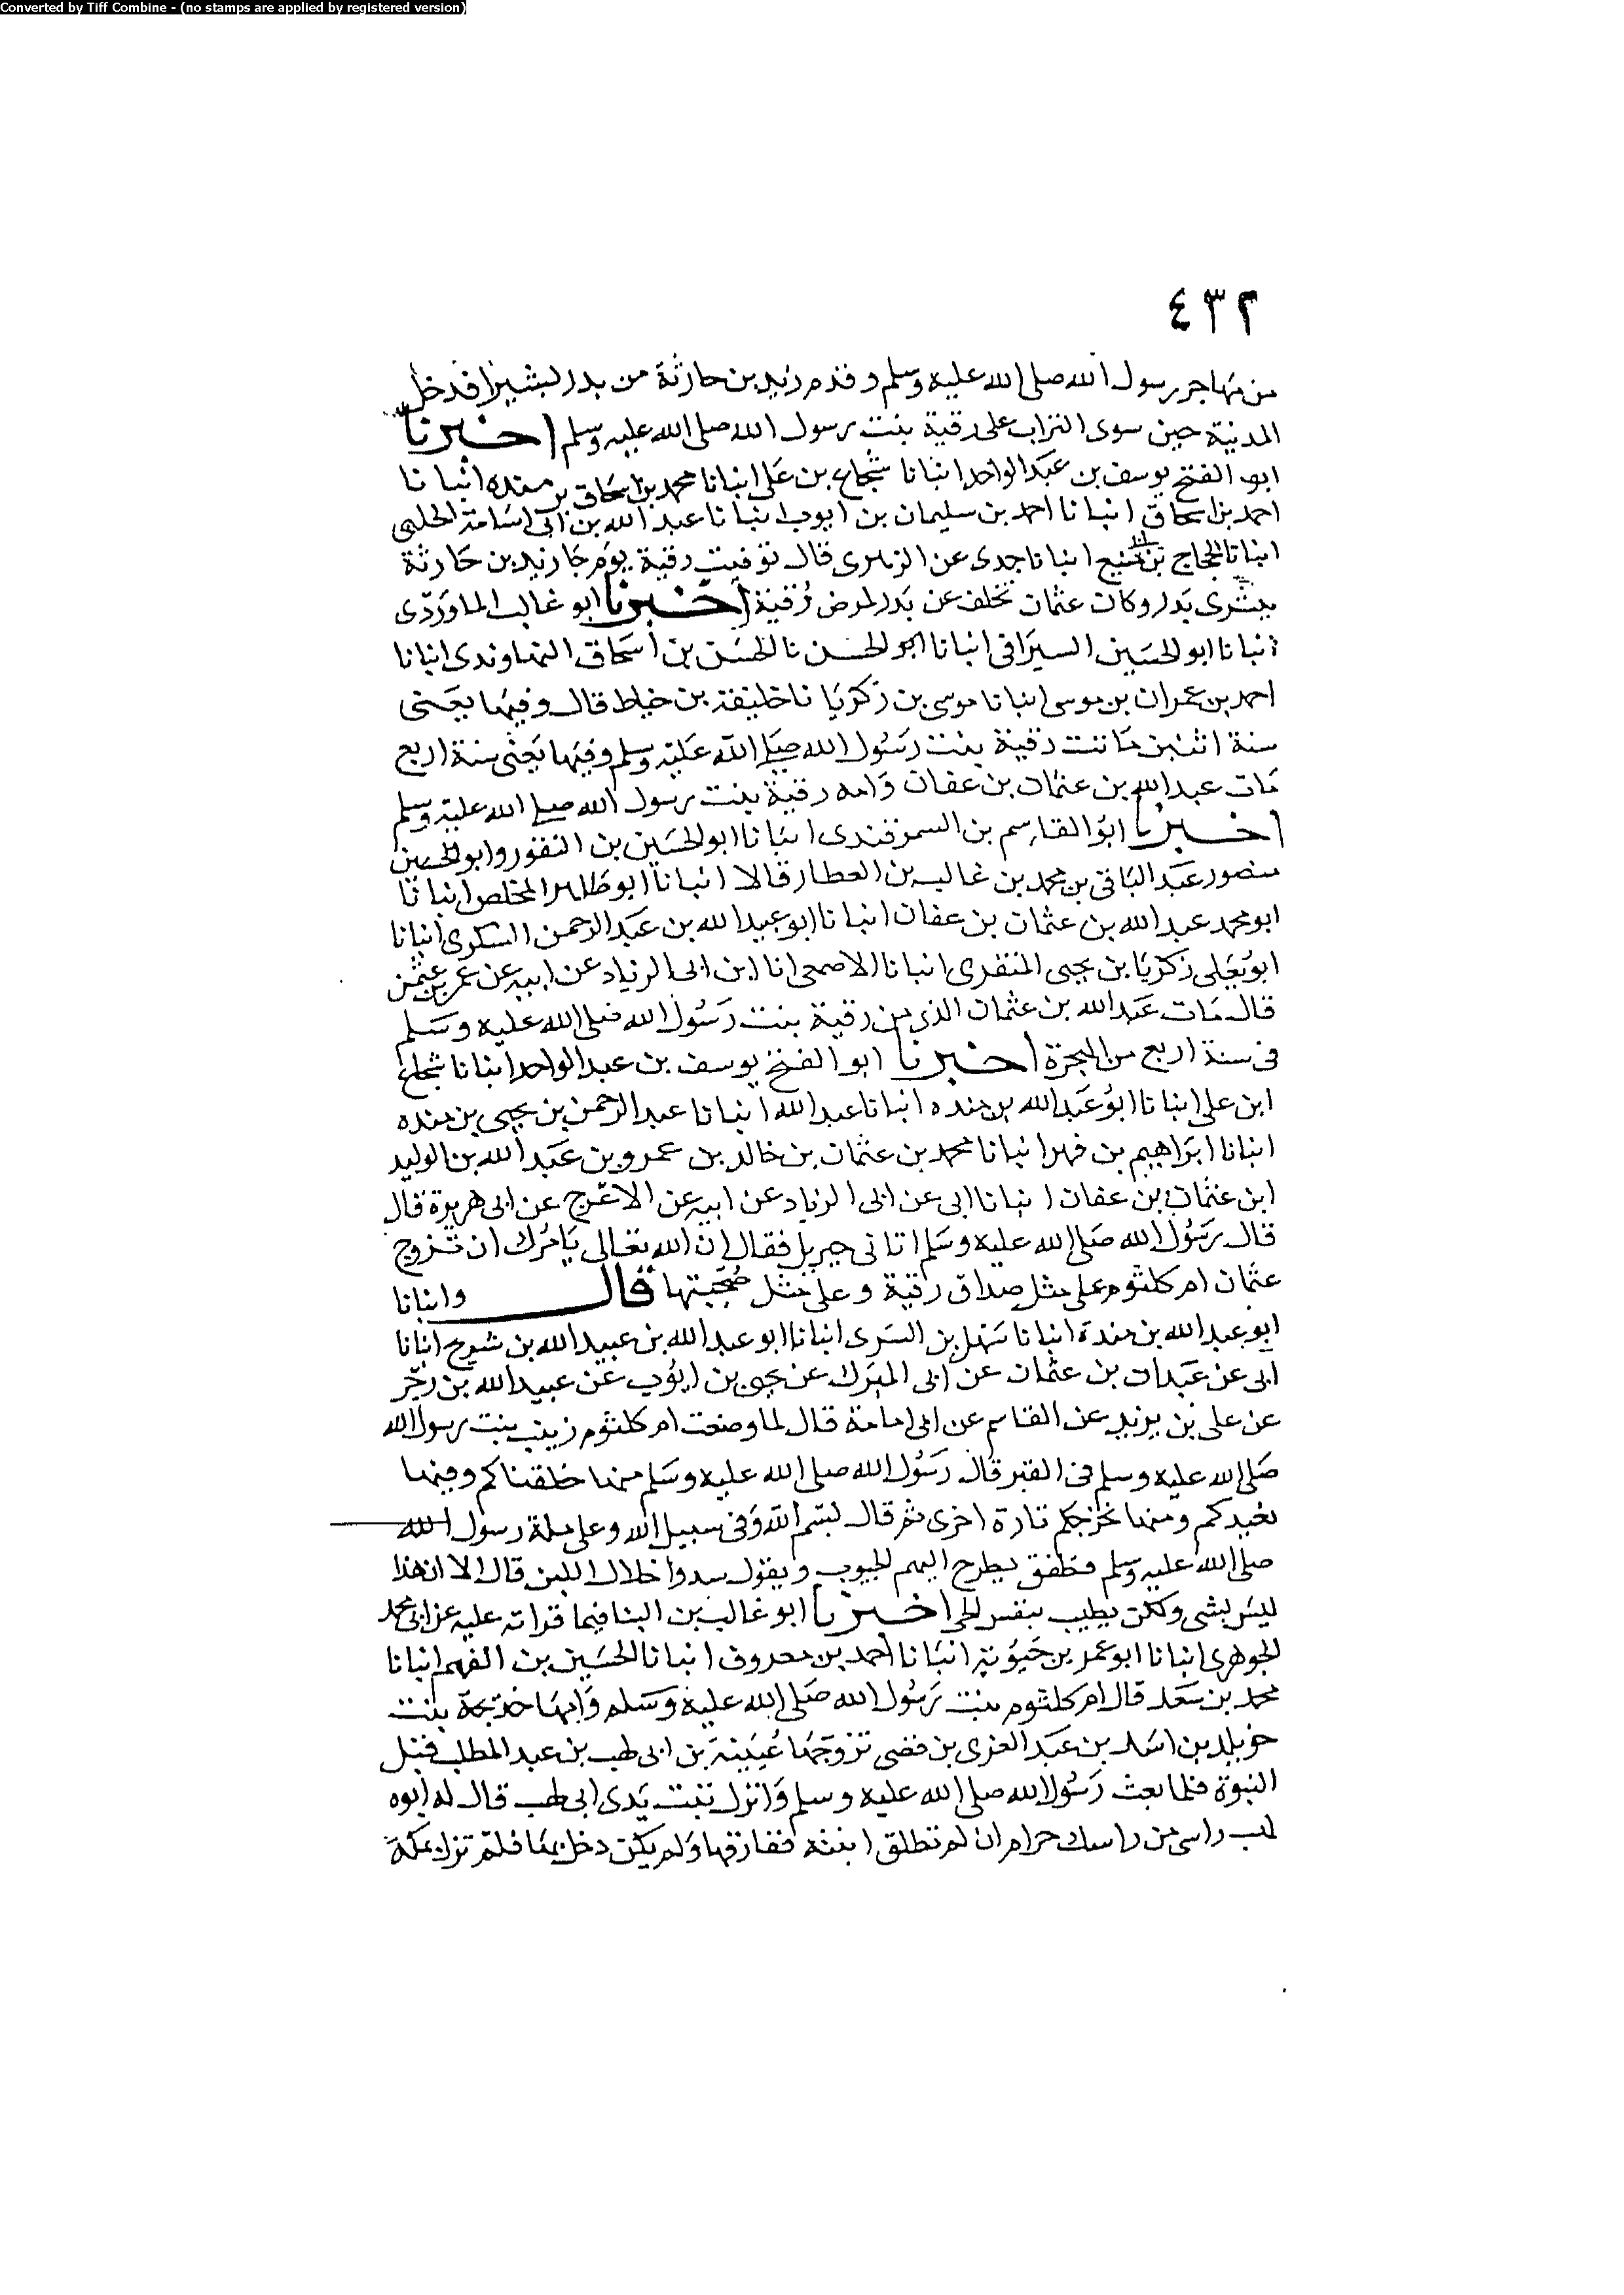 Converted by Tiff Combine - (no stamps are applied by registered version)
٤٣٢
من مهاجر رسول الله صلى الله عليه وسلم وقدم زيد بن حارثة من بدر بشيرا فدخل
المدينة حين سوى التراب على رقية بنت رسول الله صلى الله عليه وسلم اخبرنا
ابو الفتح يوسف بن عبد الواحد انبانا شجاع بن على انبانا محمد بن اسحاق بن منده انبانا
احمد بن اسحاق انبانا احمد بن سليمان بن ايوب انبانا عبد الله بن ابى اسامة الحلبى
انبانا الحجاج بن منيع انبانا جدى عن الزهرى قال توفيت رقية يوم جا زيد بن حارثة
ببشرى بدر وكان عثمان تخلف عن بدر لمرض رقية اخبرنا ابو غالب الماوردى
انبانا ابو الحسين السيرافى انبانا ابو الحسن نا الحسن بن اسحاق النهاوندى انبانا
احمد بن عمران بن موسى انبانا موسى بن زكريا نا خليفة بن خياط قال وفيها يعنى
سنة اثنين ماتت رقية بنت رسول الله صلى الله عليه وسلم وفيها يعنى سنة اربع
مات عبد الله بن عثمان بن عفان وامه رقية بنت رسول الله صلى الله عليه وسلم
اخبرنا ابو القاسم بن السمرقندى انبانا ابو الحسين بن النقور وابو الحسين
منصور عبد الباقى بن محمد بن غالب بن العطار قالا انبانا ابو طاهر المخلص انبانا
ابو محمد عبد الله بن عثمان بن عفان انبانا ابو عبيد الله بن عبد الرحمن السكرى انبانا
ابو يعلى زكريا بن يحيى المنقرى انبانا الاصمعى انا ابن ابى الزناد عن ابيه عن عمر بن عثمن
قال مات عبد الله بن عثمان الذى من رقية بنت رسول الله صلى الله عليه وسلم
فى سنة اربع من الهجرة اخبرنا ابو الفتح يوسف بن عبد الواحد انبانا شجاع
ابن على انبانا ابو عبد الله بن منده انبانا عبد الله انبانا عبد الرحمن بن يحيى بن منده
انبانا ابراهيم بن فهر انبانا محمد بن عثمان بن خالد بن عمرو بن عبد الله بن الوليد
ابن عثمان بن عفان انبانا ابى عن ابى الزناد عن ابيه عن الاعرج عن ابى هريرة قال
قال رسول الله صلى الله عليه وسلم اتانى جبريل فقال ان الله تعالى يامرك ان تزوج
عثمان ام كلثوم على مثل صداق رقية وعلى مثل صحبتها قال وانبانا
ابو عبد الله بن مندة انبانا سهل بن السرى انبانا ابو عبد الله بن عبيد الله بن شريح انبانا
ابى عن عبدان بن عثمان عن ابى المبرك عن يحيى بن ايوب عن عبيد الله بن زحر
عن على بن يزيد عن القاسم عن ابى امامة قال لما وضعت ام كلثوم زينب بنت رسول الله
صلى الله عليه وسلم فى القبر قال رسول الله صلى الله عليه وسلم منها خلقناكم وفيها
نعيدكم ومنها نخرجكم تارة اخرى ثم قال بسم الله وفى سبيل الله وعلى ملة رسول الله
صلى الله عليه وسلم فطفق يطرح اليهم الجيوب ويقول سدوا خلال اللبن قال الا ان هذا
ليس بشى ولكن يطيب بنفس الحى اخبرنا ابو غالب بن البنا فيما قراته عليه عن ابى محمد
الجوهرى انبانا ابو عمر بن حيوية انبانا احمد بن معروف انبانا الحسين بن الفهم انبانا
محمد بن سعد قال ام كلثوم بنت رسول الله صلى الله عليه وسلم وامها خديجة بنت
خويلد بن اسد بن عبد العزى بن قصى تزوجها عيينة بن ابى لهب بن عبد المطلب قبل
النبوة فلما بعث رسول الله صلى الله عليه وسلم وانزل تبت يدى ابى لهب قال له ابوه
لهب راسى من راسك حرام ان لم تطلق ابنته ففارقها ولم يكن دخل بها فلم تزل بمكة